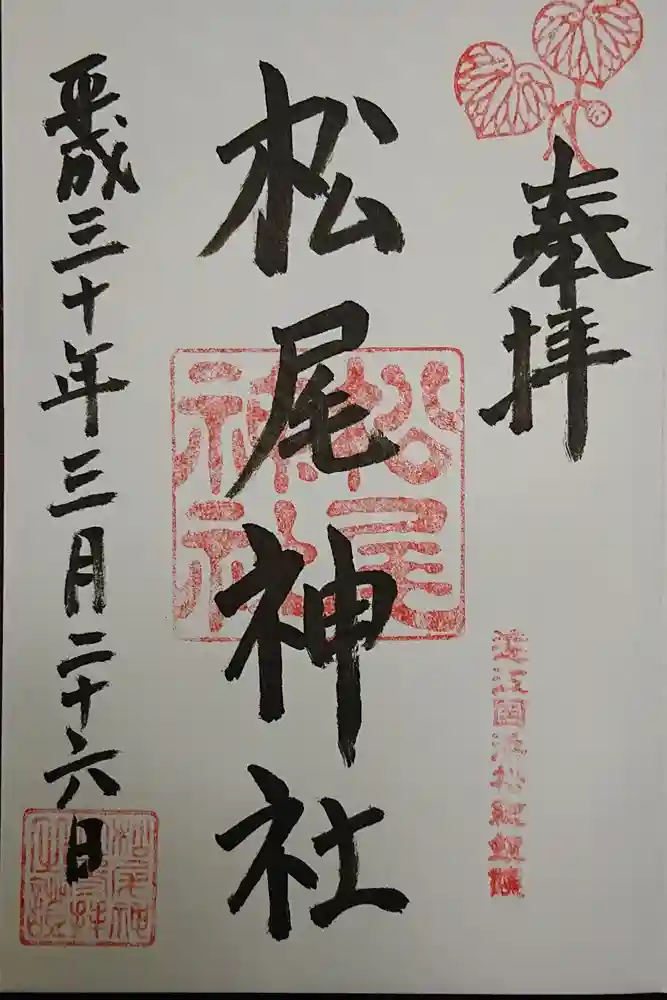 奉拝
松尾神社
平成三十年三月二十六日
松尾
神社